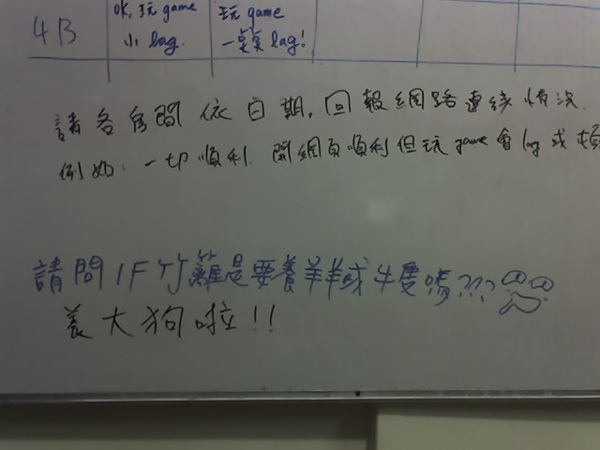 4B
ok, 玩 game
小 lag.
玩 game
一莫莫 lag!
請各房間依日期,回報網路連線情況.
例如: 一切順利. 開網頁順利但玩 game 會 lag 或
請問 1F 竹籬是要養羊或牛隻嗎???
養大狗啦!!